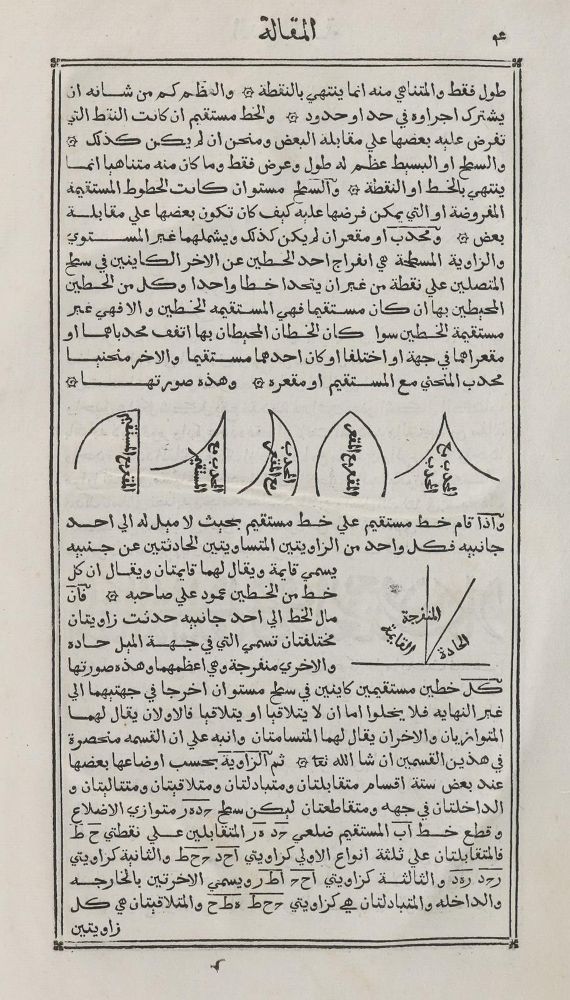 المقالة
طول فقط والمتناهي منه انما ينتهي بالنقطة ۞ والعظم كم من شانه ان
يشترك اجزاوه في حد او حدود ۞ والخط مستقيم ان كانت النقط التي
تفرض عليه بعضها علي مقابلة البعض ومنحن ان لم يكن كذلك ۞
والسطح او البسيط عظم له طول وعرض فقط وما كان منه متناهيا انما
ينتهي بالخط او النقطة ۞ والسطح مستو ان كانت الخطوط المستقيمة
المفروضة او التي يمكن فرضها عليه كيف كان تكون بعضها علي مقابلة
بعض ۞ ومحدب او مقعر ان لم يكن كذلك ويشملهما غير المستوي
والزاوية المسطحة هي انفراج احد الخطين عن الاخر الكاينين في سطح
المتصلين علي نقطة من غير ان يتحدا خطا واحدا وكل من الخطين
المحيطين بها ان كان مستقيما فهي المستقيمه الخطين والا فهي غير
مستقيمة الخطين سوا كان الخطان المحيطان بها اتفف محدباهما او
مقعراهما في جهة او اختلفا او كان احدهما مستقيما والاخر منحنيا
محدب المنحني مع المستقيم او مقعره ۞ وهذه صورتها ۞
المحدب مع المحدب
المقعر مع المقعر
المحدب مع المقعر
المحدب مع المستقيم
المقعر مع المستقيم
واذا قام خط مستقيم علي خط مستقيم بحيث لا ميل له الي احد
جانبيه فكل واحد من الزاويتين المتساويتين الحادثتين عن جنبيه
يسمي قايمة ويقال لهما قايمتان ويقال ان كل
خط من الخطين عمود علي صاحبه ۞ فان
مال الخط الي احد جانبيه حدثت زاويتان
مختلفتان تسمي التي في جهة الميل حاده
والاخري منفرجة وهي اعظمهما وهذه صورتها
المنفرجة
القايمة
الحادة
كل خطين مستقيمين كاينين في سطح مستو ان اخرجا في جهتيهما الي
غير النهايه فلا يخلوا اما ان لا يتلاقيا او يتلاقيا فالاولان يقال لهما
المتوازيان والاخران يقال لهما المتسامتان وانبه علي ان القسمه منحصرة
في هذين القسمين ان شا الله تعا ۞ ثم الزاوية بحسب اوضاعها بعضها
عند بعض ستة اقسام متقابلتان ومتبادلتان ومتلاقيتان ومتتاليتان و
الداخلتان في جهه ومتقاطعتان ليكن سطح جده ر متوازي الاضلاع
وقطع خط اب المستقيم ضلعي جد ه ر المتقابلين علي نقطتي ح ط
فالمتقابلتان علي ثلثة انواع الاولي كزاويتي احد جحط والثانية كزاويتي
رجد رهد والثالثة كزاويتي احج اطر ويسمي الاخرتين بالخارجه
والداخله والمتبادلتان هي كزاويتي جحط هطح والمتلاقيتان هي كل
زاويتين